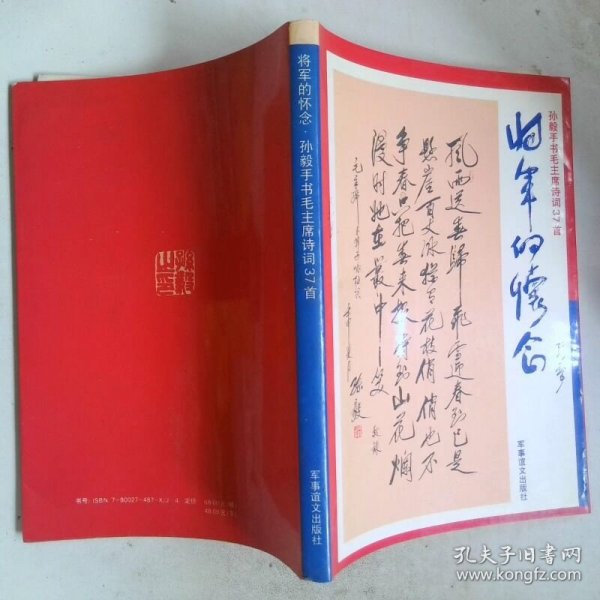 将军的怀念
孙毅手书毛主席诗词37首
风雨送春归飞雪迎春到已是
悬崖百丈冰犹有花枝俏俏也不
争春只把春来报待到山花烂
漫时她在丛中笑
孙毅
军事谊文出版社
将军的怀念·孙毅手书毛主席诗词37首
军事谊文出版社
书号:ISBN 7-80027-487-X/J·4 定价
孔夫子旧书网
www.kongfz.com